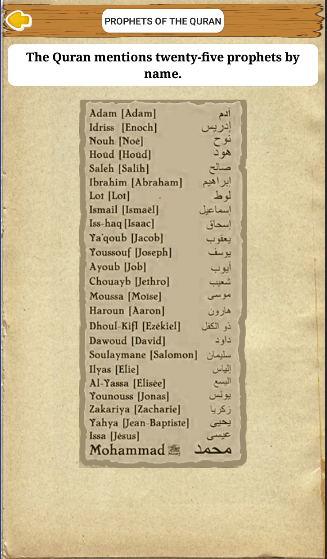 PROPHETS OF THE QURAN
The Quran mentions twenty-five prophets by
name.
Adam [Adam] آدم
Idriss [Enoch] إدريس
Nouh [Noé] نوح
Houd [Houd] هود
Saleh [Salih] صالح
Ibrahim [Abraham] إبراهيم
Lot [Lot] لوط
Ismail [Ismaël] إسماعيل
Iss-haq [Isaac] إسحاق
Ya'qoub [Jacob] يعقوب
Youssouf [Joseph] يوسف
Ayoub [Job] أيوب
Chouayb [Jethro] شعيب
Moussa [Moïse] موسى
Haroun [Aaron] هارون
Dhoul-Kifl [Ezékiel] ذو الكفل
Dawoud [David] داود
Soulaymane [Salomon] سليمان
Ilyas [Elie] إلياس
Al-Yassa [Elisée] اليسع
Younouss [Jonas] يونس
Zakariya [Zacharie] زكريا
Yahya [Jean-Baptiste] يحيى
Issa [Jésus] عيسى
Mohammad ﷺ محمد